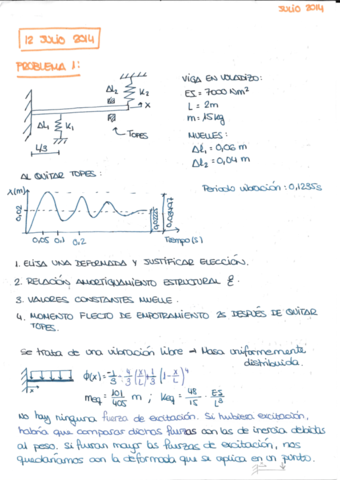 JULIO 2014
12 JULIO 2014
PROBLEMA 1:
VIGA EN VOLADIZO:
EJ = 7000 Nm²
L = 2m
m = 15kg
Δl₂
K₂
x
Δl₁
K₁
L/3
TOPES
MUELLES:
Δl₁ = 0,06 m
Δl₂ = 0,04 m
AL QUITAR TOPES:
Periodo vibración: 0,1235s
A(m)
0,02
0,05 0,1 0,2
Tiempo(s)
1. ELIJA UNA DEFORMADA Y JUSTIFICAR ELECCIÓN.
2. RELACIÓN AMORTIGUAMIENTO ESTRUCTURAL ξ.
3. VALORES CONSTANTES MUELLE.
4. MOMENTO FLECTO DE EMPOTRAMIENTO 2s DESPUÉS DE QUITAR
TOPES.
Se trata de una vibración libre → Masa uniformemente
distribuida.
ϕ(x) = -1/3 + 4/3 (x/L) + 1/3 (1 - x/L)⁴
meq = 101/405 m ; Keq = 48/15 · EJ/L³
No hay ninguna fuerza de excitación. Si hubiese excitación,
habría que comparar dichas fuerzas con las de inercia debidas
al peso. Si fueran mayor las fuerzas de excitación, nos
quedaríamos con la deformada que se aplica en un punto.